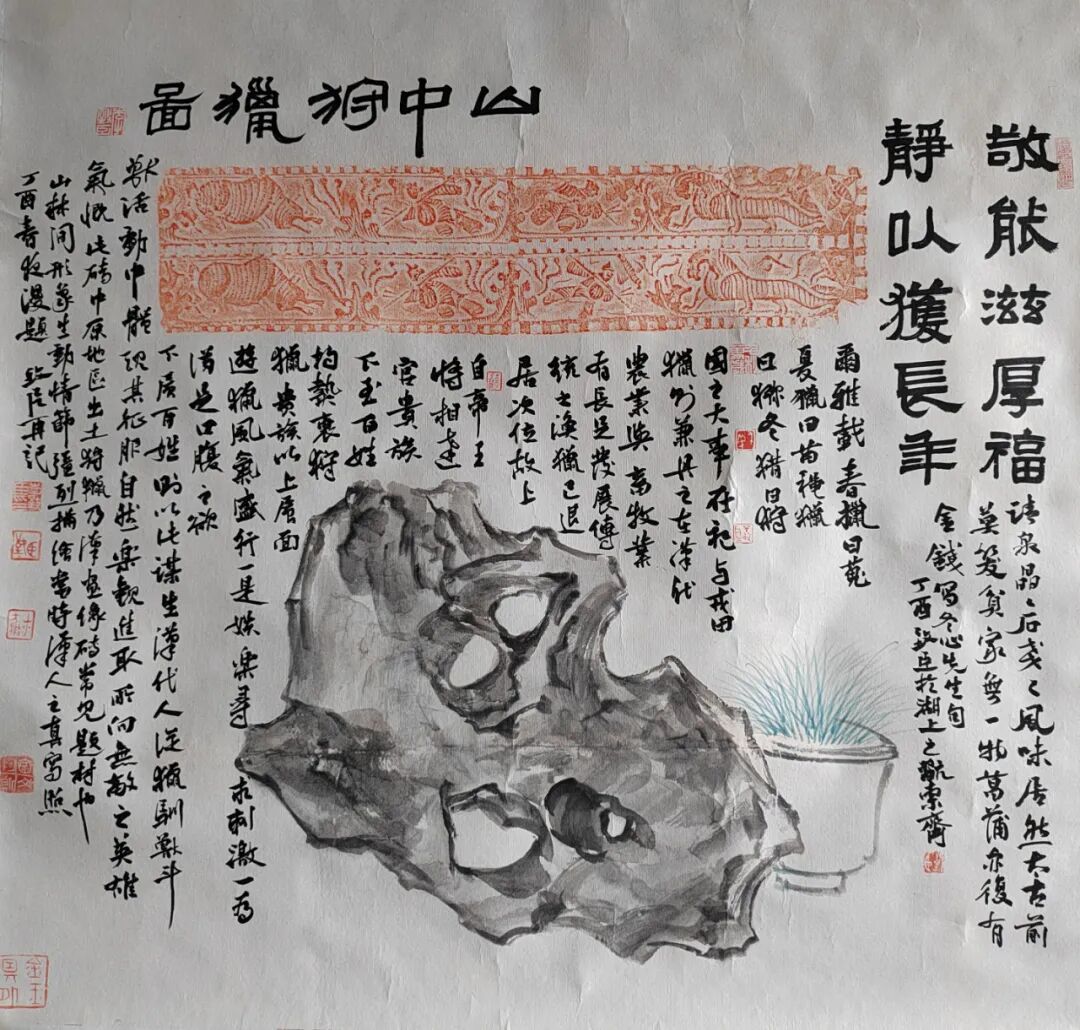 敬能滋厚福
靜以獲長年
清泉晶晶石戔戔風味居然太古前
莫笑貧家無一物菖蒲亦復有
金錢寫冬心先生句
丁酉於湖上之翫索齋
山中狩獵圖
爾雅載春獵曰蒐
夏獵曰苗秋獵
曰獮冬獵曰狩
國之大事在祀與戎田
獵則兼具之在漢代
農業與畜牧業
有長足發展傳
統之漁獵已退
居次位故上
自帝王
將相達
官貴族
下至百姓
均熱衷狩
獵貴族以上層面
遊獵風氣盛行一是娛樂尋求刺激一為
滿足口腹之欲
下層百姓則以此謀生漢代人從獵馴獸斗
獸活動中體現其征服自然樂觀進取所向無敵之英雄
氣慨此磚中原地區出土狩獵乃漢畫像磚常見題材也
山林間形象生動情節強烈描繪當時漢人之真寫照
丁酉春牧漫題 再記